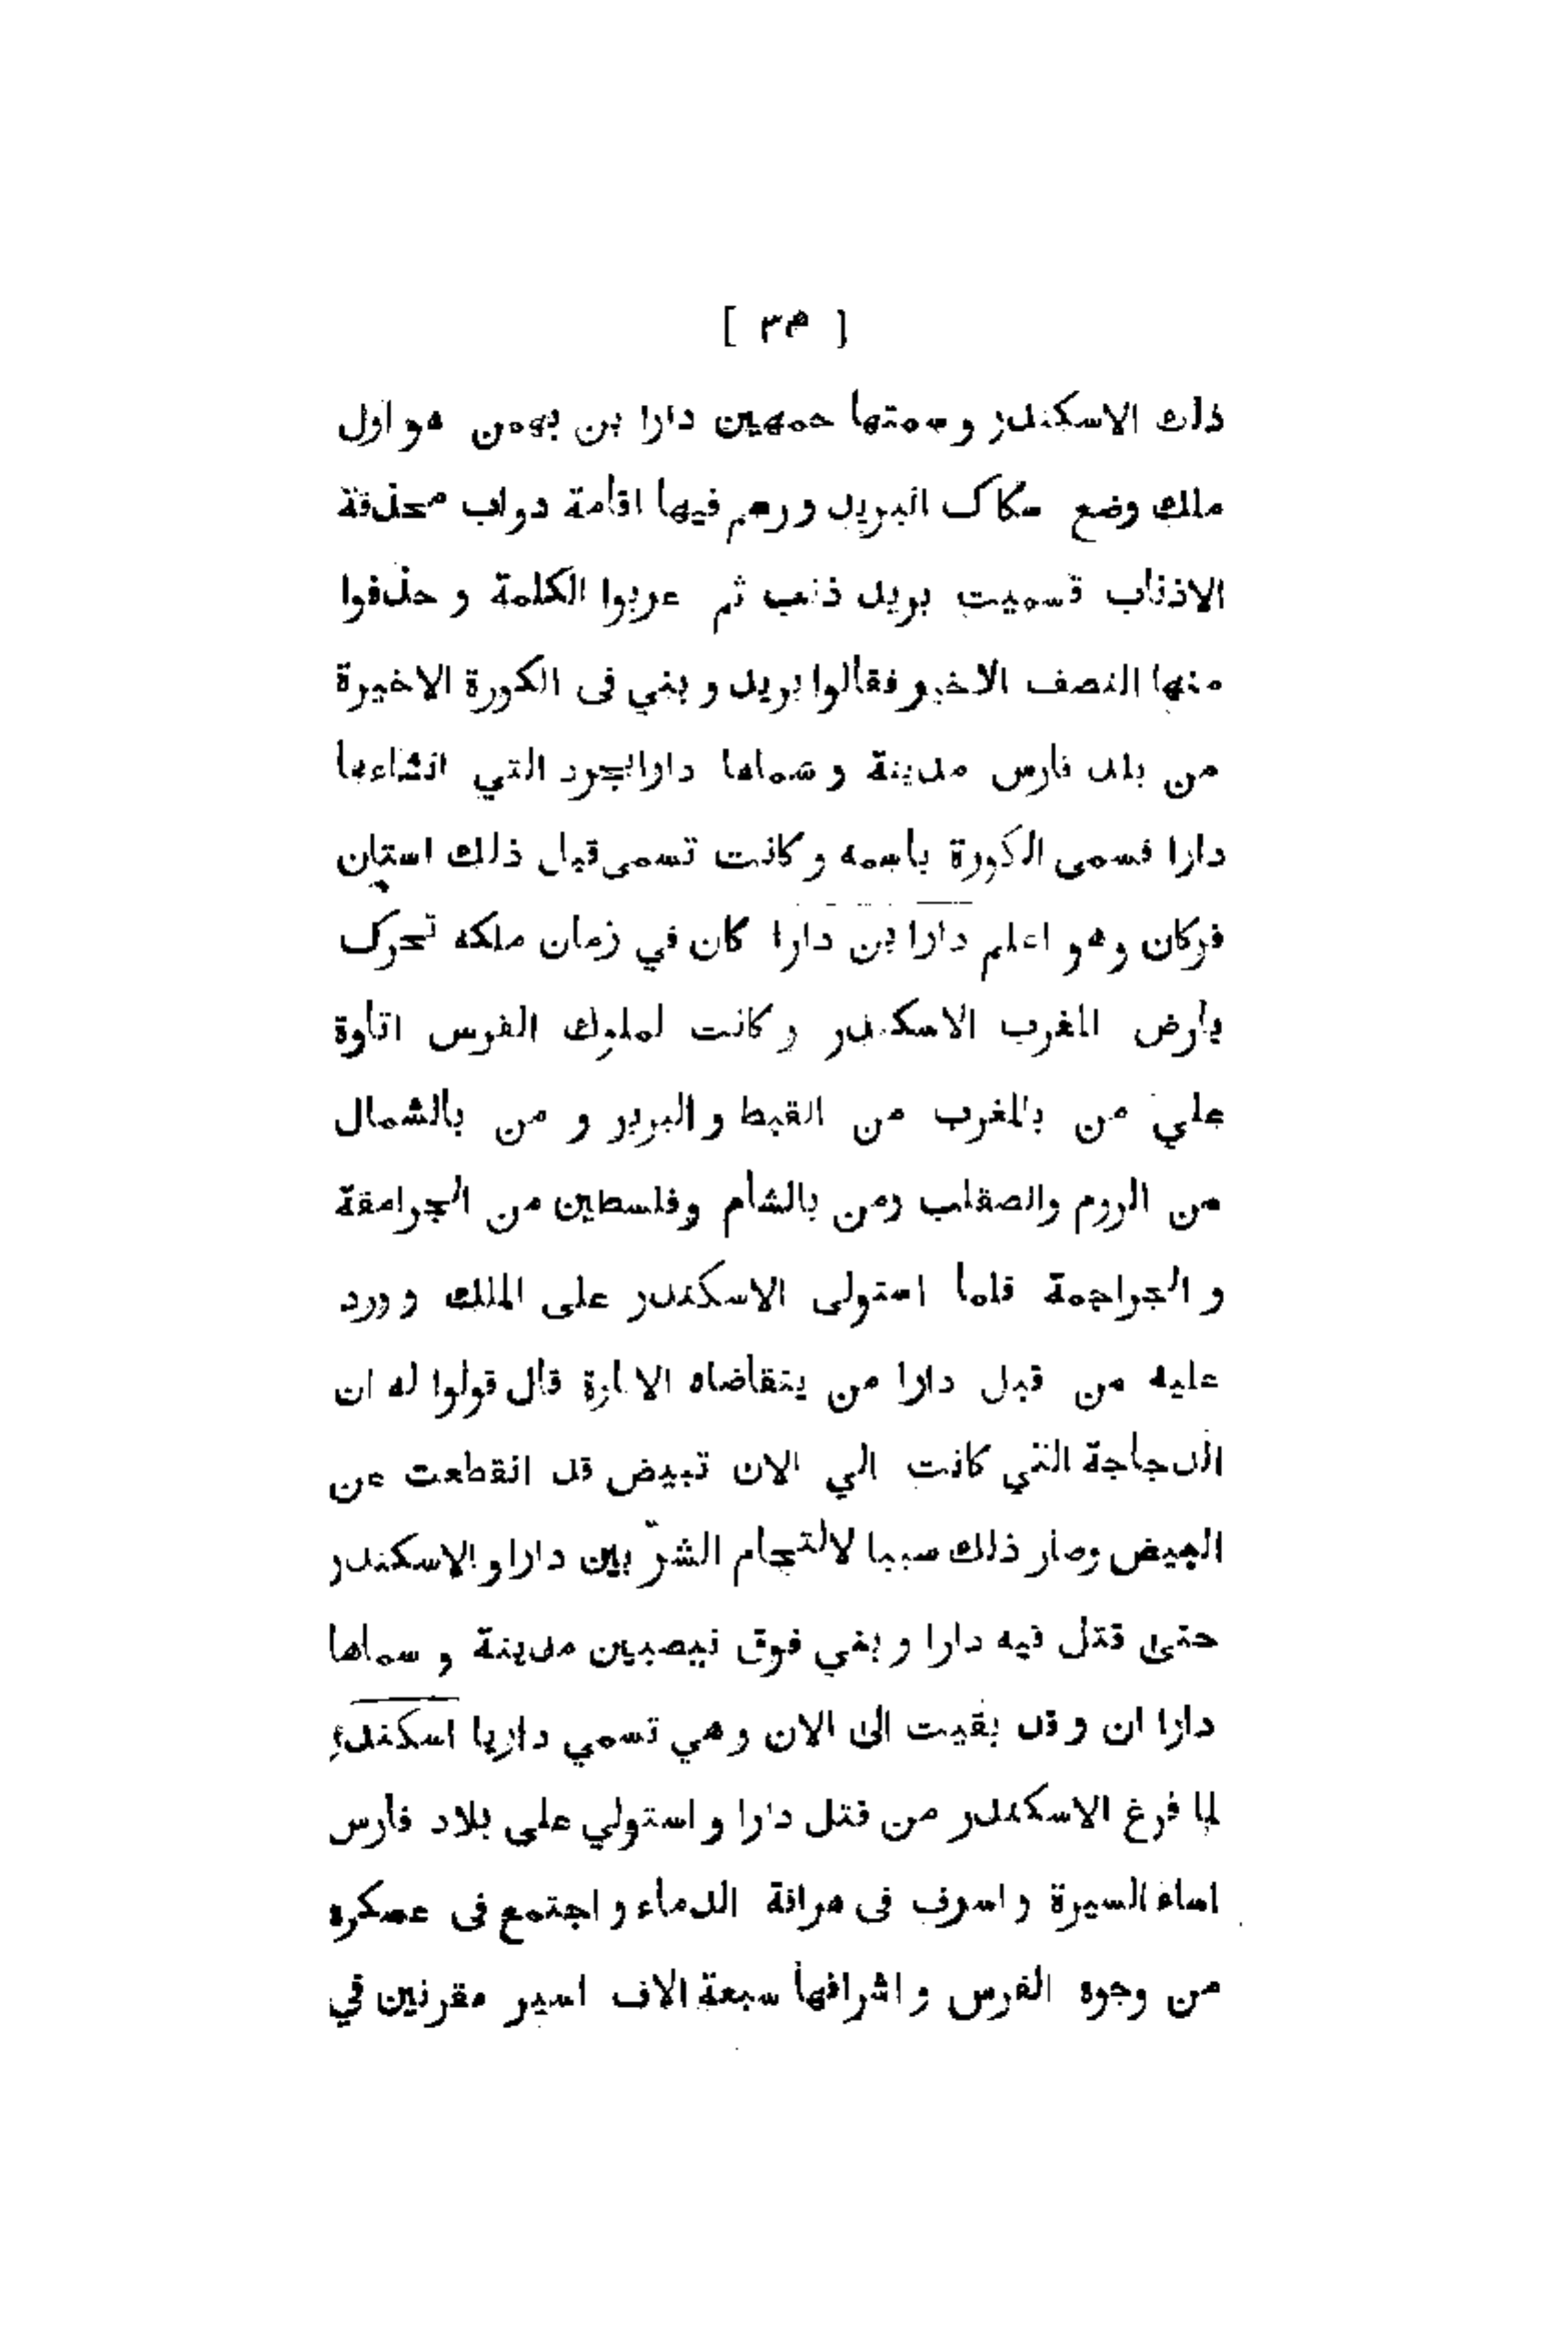 [ ٣٥ ]
ذلك الاسكندر و سمتها حمهين دارا بن بهمن هو اول
ملك وضع سكاك البريد و رسم فيها اقامة دواب محذفة
الاذناب فسميت بريد ذنب ثم عربوا الكلمة و حذفوا
منها النصف الاخير فقالوا بريد و بني فى الكورة الاخيرة
من بلد فارس مدينة و سماها دارابجرد التي انشاءها
دارا فسمى الكورة باسمه و كانت تسمى قبل ذلك استان
فركان وهو اعلم دارا بن دارا كان في زمان ملكه تحرك
بارض المغرب الاسكندر و كانت لملوك الفرس اتاوة
علي من بالمغرب من القبط و البربر و من بالشمال
من الروم والصقلب ومن بالشام وفلسطين من الجرامقة
و الجراجمة فلما استولى الاسكندر على الملك و ورد
عليه من قبل دارا من يتقاضاه الاتاوة قال قولوا له ان
الدجاجة التي كانت الي الان تبيض قد انقطعت عن
البيض وصار ذلك سببا لالتحام الشرّ بين دارا و الاسكندر
حتى قتل فيه دارا و بني فوق نيصبين مدينة و سماها
دارا ان و قد بقيت الى الان و هي تسمي داريا اسكندر
لما فرغ الاسكندر من قتل دارا و استولي على بلاد فارس
اساء السيرة و اسرف فى هراقة الدماء و اجتمع فى عسكره
من وجوه الفرس و اشرافها سبعة الاف اسير مقرنين في